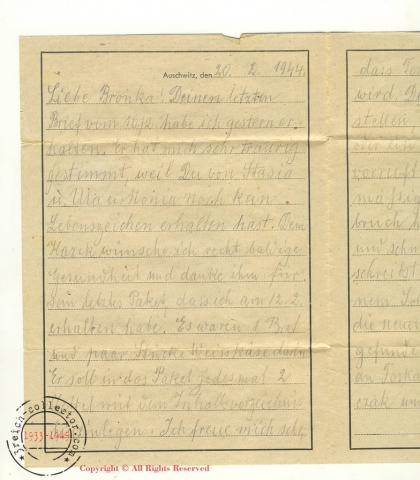 Auschwitz, den 20. 2. 1944.
Liebe Bronka! Deinen letzten
Brief vom 10/2. habe ich gestern er-
halten. Er hat mich sehr traurig
gestimmt, weil Du von Stasia
u. Ula u. noch kein
Lebenszeichen erhalten hast. Dem
wünsche ich recht baldige
Gesundheit und danke ihm für
Sein letztes Paket, dass ich am 12. 2.
erhalten habe. Es waren 1 Brot
und paar Stücke Weisskäse darin
Er soll in das Paket jedesmal 2
mit dem Inhaltsverzeichnis
Ich freue mich sehr,
dass
wird
stellen
oder ein
mässig
bruch
und
schreibst
nem
die neuen
gefunden
an
czak
3reich-collector.com
1933-1945
Copyright © All Rights Reserved